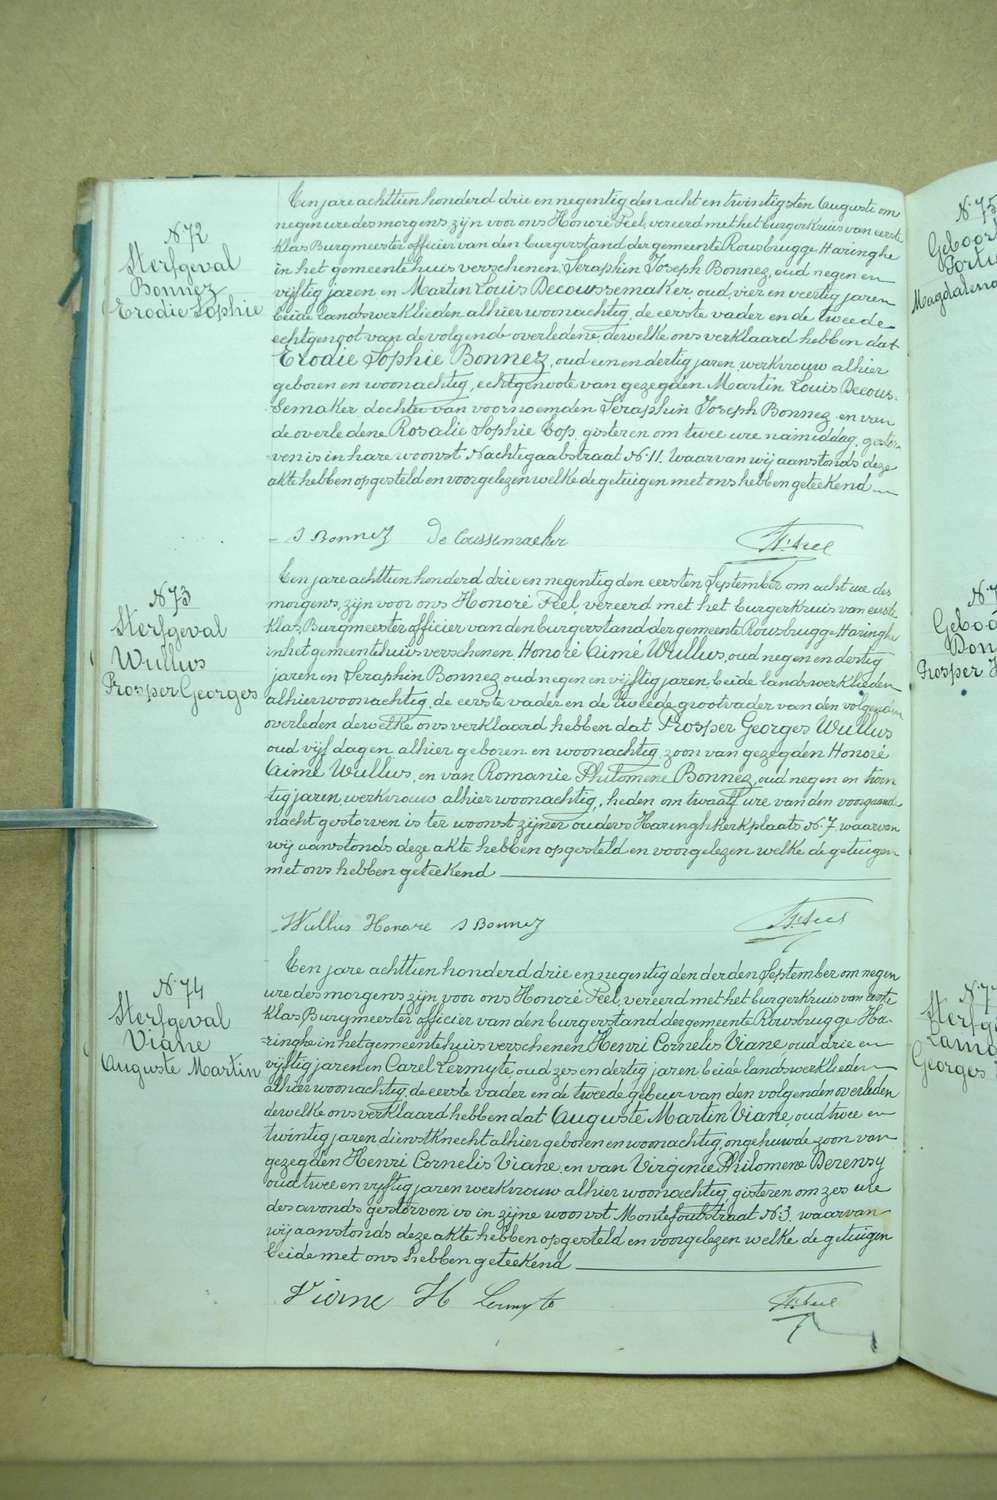 N 72
Sterfgeval
Bonnez
Elodie Sophie
Een jare achttien honderd drie en negentig den acht en twintigsten Augusti om
negen ure des morgens zijn voor ons Honoré Feel, vereerd met het burgerkruis van eerste
klas, Burgmeester officier van den burgerstand der gemeente Rousbrugge Haringhe
in het gemeentehuis verschenen, Seraphin Joseph Bonnez, oud negen en
vijftig jaren en Martin Louis Decoussemaker, oud, vier en veertig jaren
beide landswerklieden alhier woonachtig, de eerste vader en de tweede
echtgenoot van de volgende overledene, dewelke ons verklaard hebben dat
Elodie Sophie Bonnez, oud een en dertig jaren, werkvrouw alhier
geboren en woonachtig, echtgenote van gezegden Martin Louis Decous-
semaker dochter van voornoemden Seraphin Joseph Bonnez en van
de overledene Rosalie Sophie Top, gisteren om twee ure namiddag, gestor-
ven is in hare woonst Nachtegaalstraat N. 11. Waarvan wij aanstonds deze
akte hebben opgesteld en voorgelezen welke de getuigen met ons hebben geteekend
S Bonnez De Coussemaeker H. Feel
N 73
Sterfgeval
Wullus
Prosper Georges
Een jare achttien honderd drie en negentig den eersten September om acht ure des
morgens, zijn voor ons Honoré Feel, vereerd met het burgerkruis van eerste
klas, Burgmeester officier van den burgerstand der gemeente Rousbrugge Haringhe
in het gemeentehuis verschenen, Honoré Aimé Wullus, oud negen en dertig
jaren en Seraphin Bonnez oud negen en vijftig jaren, beide landswerklieden
alhier woonachtig, de eerste vader en de tweede grootvader van den volgenden
overleden dewelke ons verklaard hebben dat Prosper Georges Wullus
oud vijf dagen alhier geboren en woonachtig, zoon van gezegden Honoré
Aimé Wullus, en van Romanie Philomene Bonnez, oud negen en twin
tig jaren, werkvrouw alhier woonachtig, heden om twaalf ure van den voorgaande
nacht gestorven is ter woonst zijner ouders Haringhe Kerkplaats N. 7 waarvan
wij aanstonds deze akte hebben opgesteld en voorgelezen welke de getuigen
met ons hebben geteekend
Wullus Honore S Bonnez H. Feel
N 74
Sterfgeval
Viane
Auguste Martin
Een jare achttien honderd drie en negentig den derden September om negen
ure des morgens zijn voor ons Honoré Feel, vereerd met het burgerkruis van eerste
klas, Burgmeester officier van den burgerstand der gemeente Rousbrugge Ha-
ringhe in het gemeentehuis verschenen Henri Cornelis Viane, oud drie en
vijftig jaren en Carel Lermyte, oud zes en dertig jaren beide landswerklieden
alhier woonachtig, de eerste vader en de tweede gebeur van den volgenden overleden
dewelke ons verklaard hebben dat Auguste Martin Viane, oud twee en
twintig jaren dienstknecht alhier geboren en woonachtig, ongehuwde zoon van
gezegden Henri Cornelis Viane, en van Virginie Philomene Derensy
oud twee en vijftig jaren werkvrouw alhier woonachtig, gisteren om zes ure
des avonds gestorven is in zijne woonst Montefoubstraat N 3. waarvan
wij aanstonds deze akte hebben opgesteld en voorgelezen welke de getuigen
beide met ons hebben geteekend
Viane H Lermyte H. Feel
N 75
Geboor
Magdalena
Prosper H
Georges